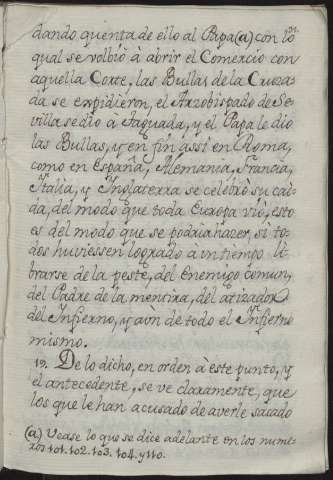 dando quenta de ello al Papa (a) con lo
qual se volbió à abrir el Comercio con
aquella Corte, las Bullas de la Cruza-
da se expidieron, el Arzobispado de Se-
villa se dio à Taguada, y el Papa le dio
las Bullas, y en fin assi en Roma,
como en España, Alemania, Francia,
Italia, y Inglaterra se celebrò su cai-
da, del modo que toda Europa viò, esto
es del modo que se podria hazer, si to-
dos huviessen logrado a un tiempo li-
brarse de la peste, del Enemigo comun,
del Padre de la mentira, del atizador
del Infierno, y aun de todo el Infierno
mismo.
19. De lo dicho, en orden à este punto, y
el antecedente, se ve claramente, que
los que le han acusado de averle sacado
(a) Vease lo que se dice adelante en los nume-
ros 101. 102. 103. 104. y 110.